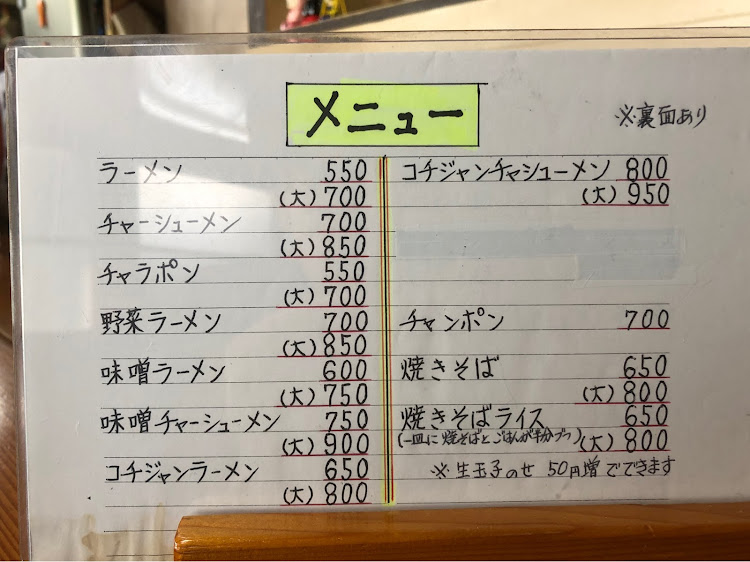 メニュー
※裏面あり
ラーメン 550
(大)700
チャーシューメン 700
(大)850
チャラポン 550
(大)700
野菜ラーメン 700
(大)850
味噌ラーメン 600
(大)750
味噌チャーシューメン 750
(大)900
コチジャンラーメン 650
(大)800
コチジャンチャシューメン 800
(大)950
チャンポン 700
焼きそば 650
(大)800
焼きそばライス 650
(一皿に焼そばとごはんが半分づつ)(大)800
※生玉子のせ 50円増でできます